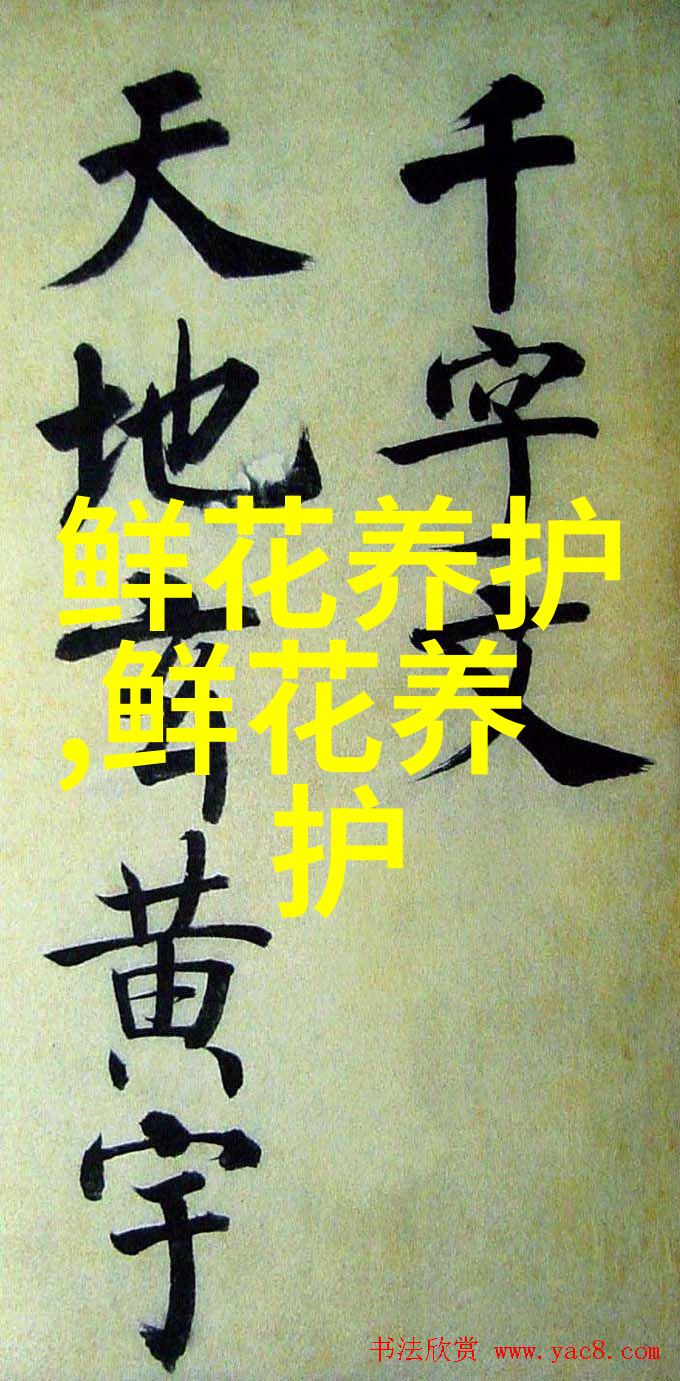 千字文
天地黄宇
鲜花养护
,鲜花养
护
书法欣赏 www.yac8.com